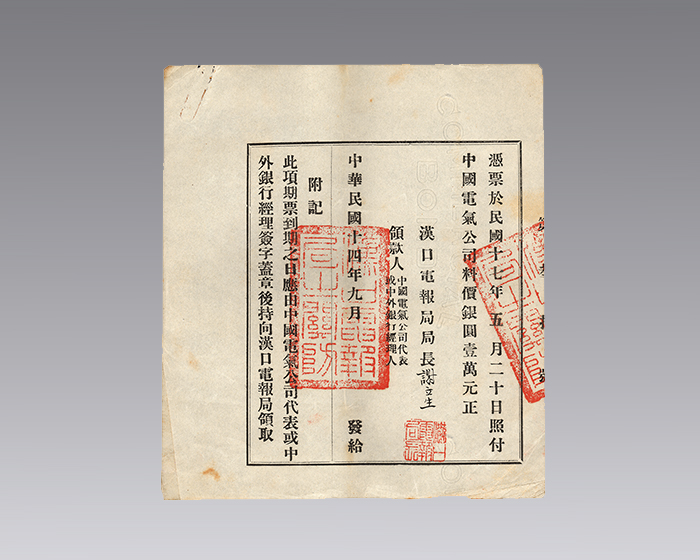 憑票於民國十七年五月二十日照付
中國電氣公司料價銀圓壹萬元正
漢口電報局局長謝立生
領款人
中國電氣公司代表
或中外銀行經理人
中華民國十四年九月 發給
附記
此項期票到期之日應由中國電氣公司代表或中
外銀行經理簽字蓋章後持向漢口電報局領取
漢口電報
局之關防